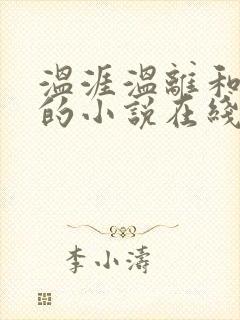 温涯温離和
的小说在线
李小濤